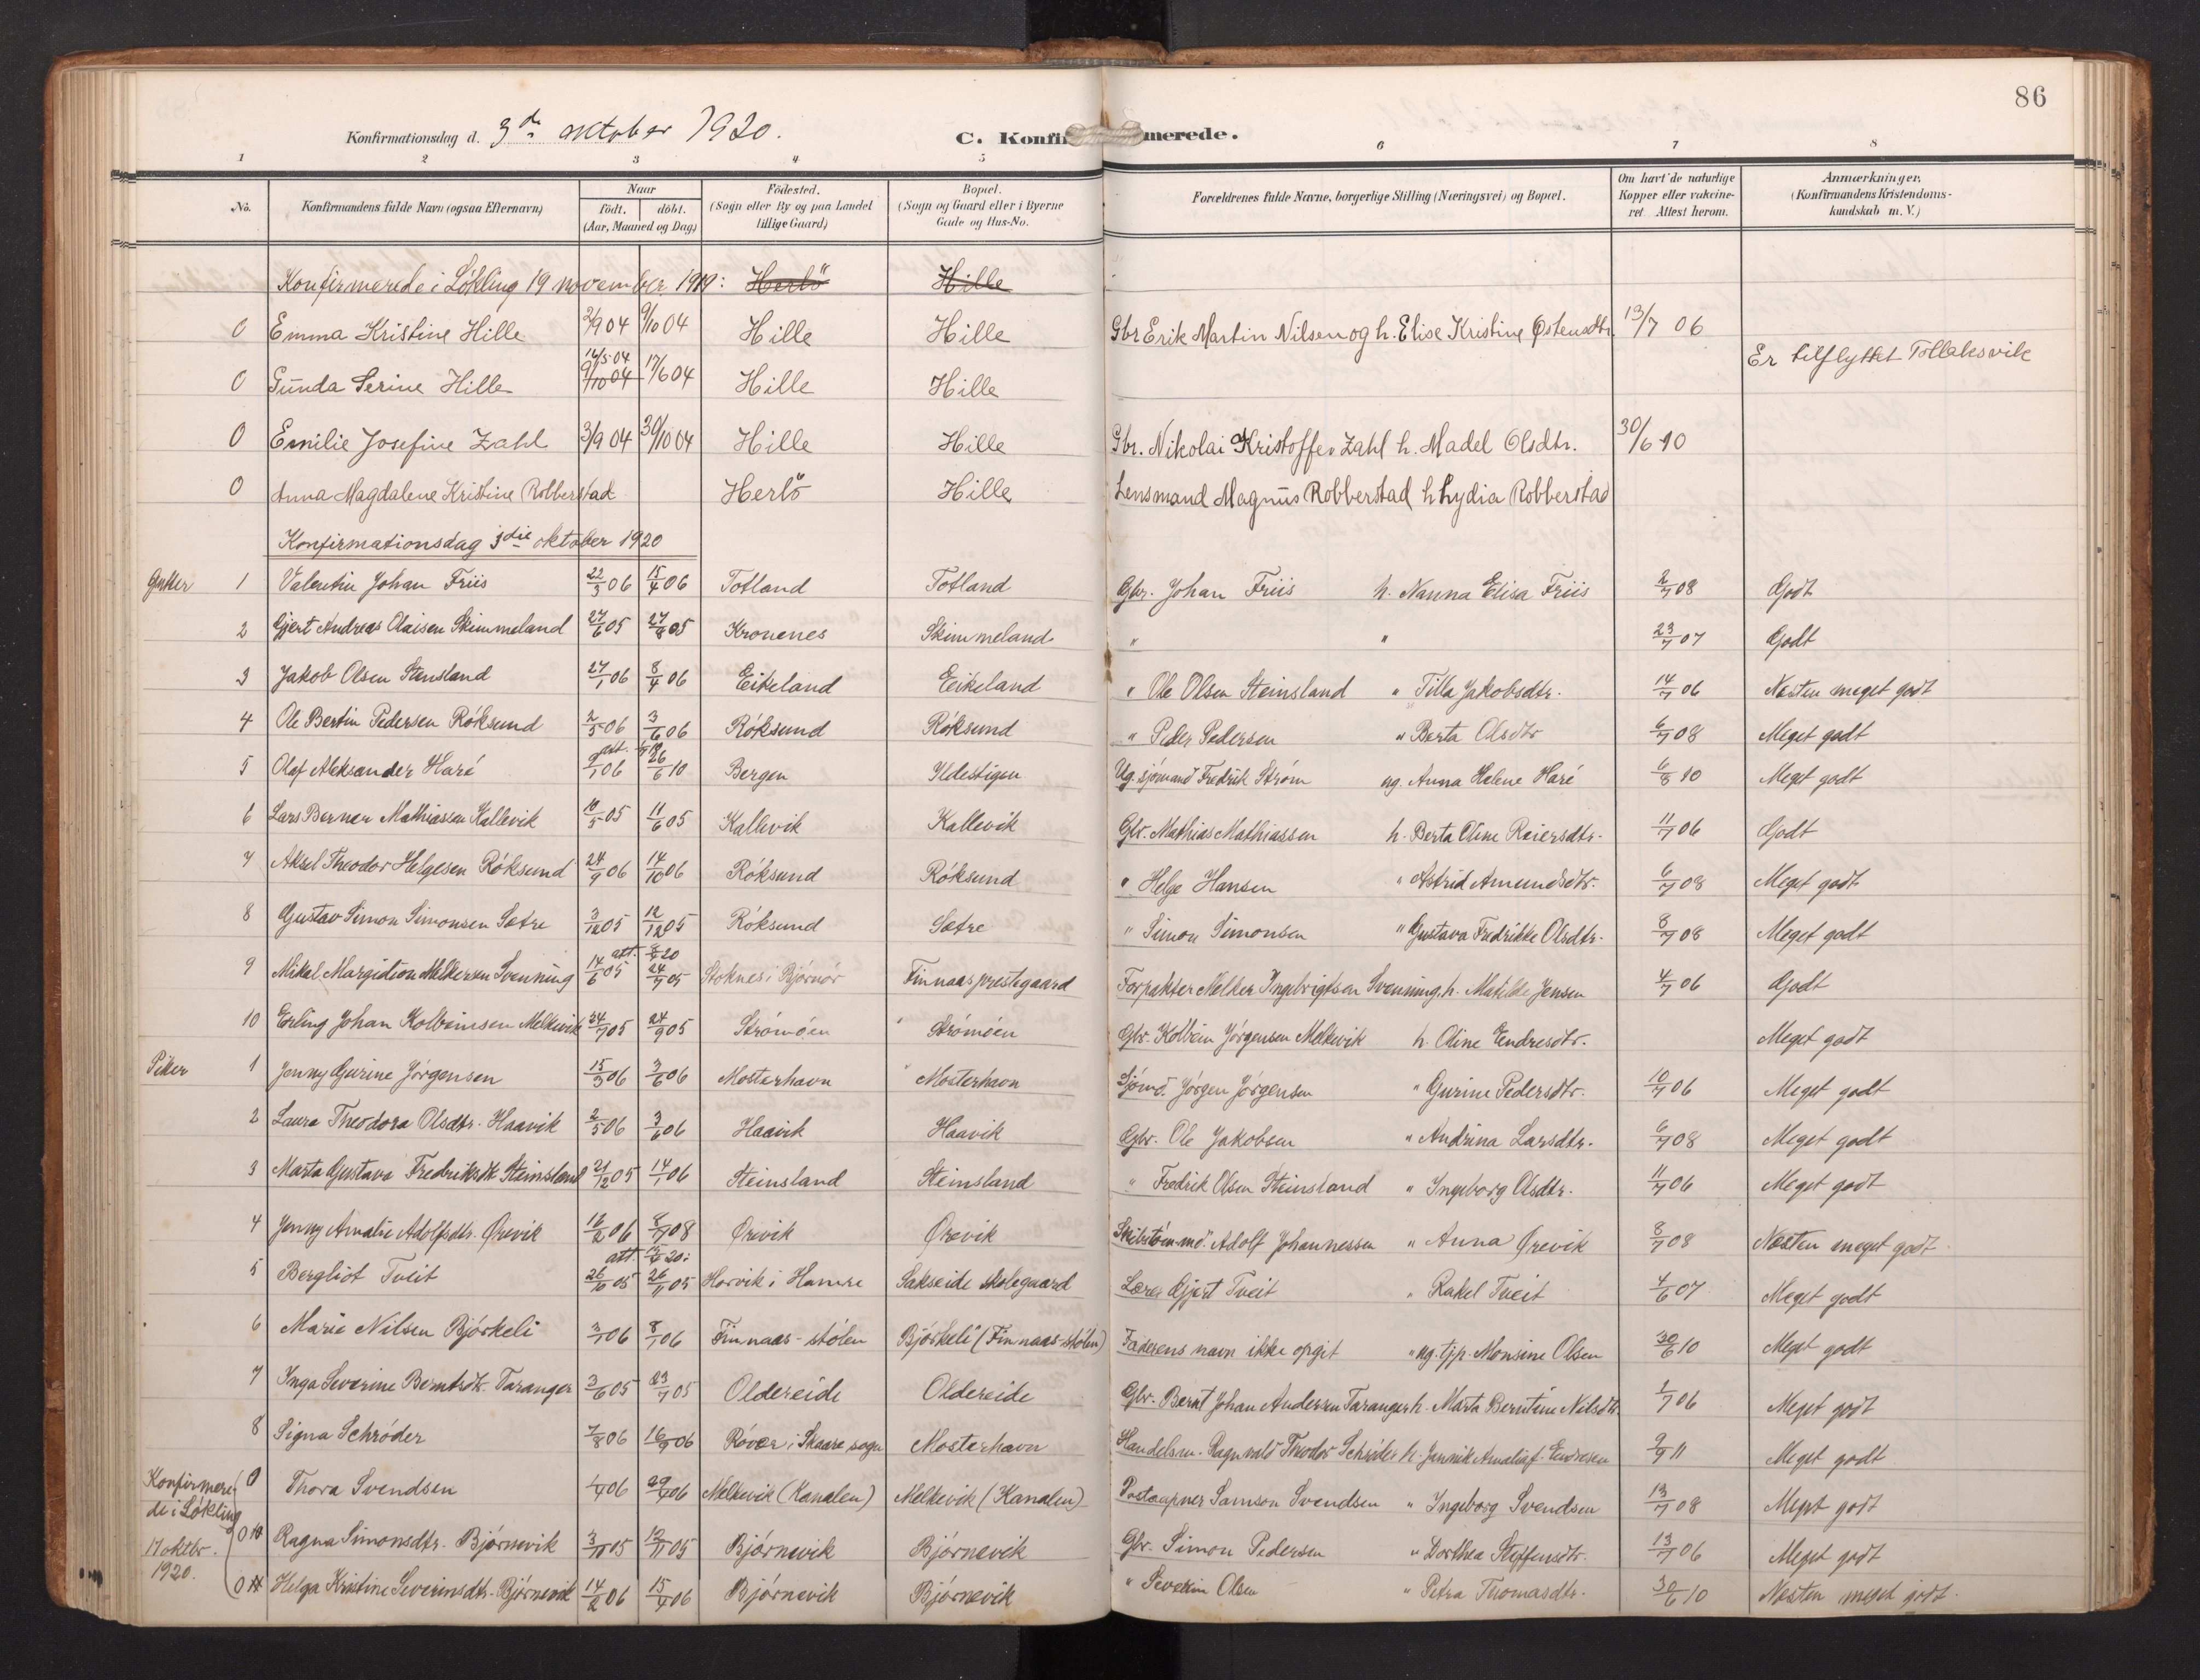 86
Konfirmationsdag d. 3die oktober 1920.
C. Konfirmerede.
1 2 3 4 5 6 7 8
No. Konfirmandens fulde Navn (ogsaa Efternavn) Naar født. døbt. (Aar, Maaned og Dag) Fødested. (Sogn eller By og paa Landet tillige Gaard) Bopæl. (Sogn og Gaard eller i Byerne Gade og Hus-No. Forældrenes fulde Navne, borgerlige Stilling (Næringsvei) og Bopæl. Om havt de naturlige Kopper eller vakcineret. Attest herom. Anmærkninger, (Konfirmandens Kristendomskundskab m. V.)
Konfirmerede i Løkling 19 november 1919: Herlö Hille
0 Emma Kristine Hille 2/9 04 9/10 04 Hille Hille Gbr Erik Martin Nilsen og h. Elise Kristine Østensdtr. 13/7 06
0 Gunda Serine Hille 16/5 04 9/10 04 17/6 04 Hille Hille Er tilflyttet Tollaksvik
0 Emilie Josefine Zahl 3/9 04 30/10 04 Hille Hille Gbr. Nikolai Kristoffer Zahl h. Madel Olsdtr. 30/6 10
0 Anna Magdalene Kristine Robberstad Herlö Hille Lensmand Magnus Robberstad h Lydia Robberstad
Konfirmationsdag 3die oktober 1920
Gutter 1 Valentin Johan Friis 22/3 06 15/4 06 Totland Totland Gbr. Johan Friis h. Nanna Elisa Friis 2/7 08 Godt
2 Gjert Andreas Olaisen Skimmeland 27/6 05 27/8 05 Kronenes Skimmeland " " 23/7 07 Godt
3 Jakob Olsen Stensland 27/1 06 8/4 06 Eikeland Eikeland " Ole Olsen Steinsland " Tilla Jakobsdtr. 14/7 06 Nesten meget godt
4 Ole Bertin Pedersen Røksund 2/5 06 3/6 06 Røksund Røksund " Peder Pedersen " Berta Olsdtr 6/7 08 Meget godt
5 Olaf Aleksander Haré 9/1 06 att. 26/6 10 Bergen Ildestigen Ug. sjømand Fredrik Strøm ug. Anna Helene Haré 6/8 10 Meget godt
6 Lars Berner Mathiassen Kallevik 10/5 05 11/6 05 Kallevik Kallevik Gbr. Mathias Mathiassen h. Berta Oline Reiersdtr. 11/7 06 Godt
7 Aksel Theodor Helgesen Røksund 24/9 06 14/10 06 Røksund Røksund " Helge Hansen " Astrid Amundsdtr. 6/7 08 Meget godt
8 Gustav Simon Simonsen Sætre 3/12 05 12/12 05 Røksund Sætre " Simon Simonsen " Gustava Fredrikke Olsdtr. 8/7 08 Meget godt
9 Mikal Margidion Melkersen Svenning 14/6 05 att. 24/7 05 Stoknes i Bjørnør Finnaas prestegaard Forpakter Melker Ingebrigtsen Svenning, h. Matilde Jensen 4/7 06 Godt
10 Erling Johan Kolbeinsen Melkevik 24/7 05 24/9 05 Strømøen Strømøen Gbr. Kolbein Jørgensen Melkevik h. Oline Endresdtr. Meget godt
Piker 1 Jenny Gurine Jørgensen 15/3 06 3/6 06 Mosterhavn Mosterhavn Sjømd. Jørgen Jørgensen " Gurine Pedersdtr. 10/7 06 Meget godt
2 Laura Theodora Olsdtr. Haavik 2/5 06 3/6 06 Haavik Haavik Gbr. Ole Jakobsen " Andrina Larsdtr. 6/7 08 Meget godt
3 Marta Gustava Fredriksdtr Steinsland 21/12 05 14/1 06 Steinsland Steinsland " Fredrik Olsen Steinsland " Ingeborg Olsdtr. 11/7 06 Meget godt
4 Jenny Amalie Adolfsdtr. Ørevik 12/2 06 8/7 08 Ørevik Ørevik Adolf Johannessen " Anna Ørevik 8/7 08 Nesten meget godt
5 Bergliot Tveit 26/6 05 att. 26/11 05 Horvik i Hamre Sakseide skolegaard Lærer Gjert Tveit " Rakel Tveit 4/6 07 Meget godt
6 Marie Nilsen Bjørkeli 3/1 06 8/1 06 Finnaas-stølen Bjørkeli (Finnaas-stølen) Faderens navn ikke opgit " ug. tjp. Monsine Olsen 30/6 10 Meget godt
7 Inga Severine Berntsdtr. Taranger 3/6 05 23/7 05 Oldereide Oldereide Gbr. Bernt Johan Andersen Taranger h. Marta Berntine Nilsdtr. 2/7 06 Meget godt
8 Signa Schrøder 7/8 06 16/9 06 Røvær i Skaare sogn Mosterhavn Handelsm. Ragnvald Theodor Schrøder h. Jannik Amalia f. Endresen 9/9 11 Meget godt
Konfirmerede i Løkling 17 oktbr. 1920.
0 Thora Svendsen 1/4 06 29/4 06 Melkevik (Kanalen) Melkevik (Kanalen) Postaapner Samson Svendsen " Ingeborg Svendsen 13/7 08 Meget godt
0 10 Ragna Simonsdtr. Bjørnevik 3/11 05 12/11 05 Bjørnevik Bjørnevik Gbr. Simon Pedersen " Dorthea Steffensdtr. 13/7 06 Meget godt
0 11 Helga Kristine Severinsdtr. Bjørnevik 14/2 06 15/4 06 Bjørnevik Bjørnevik " Severin Olsen " Petra Thomasdtr. 30/6 10 Nesten meget godt.